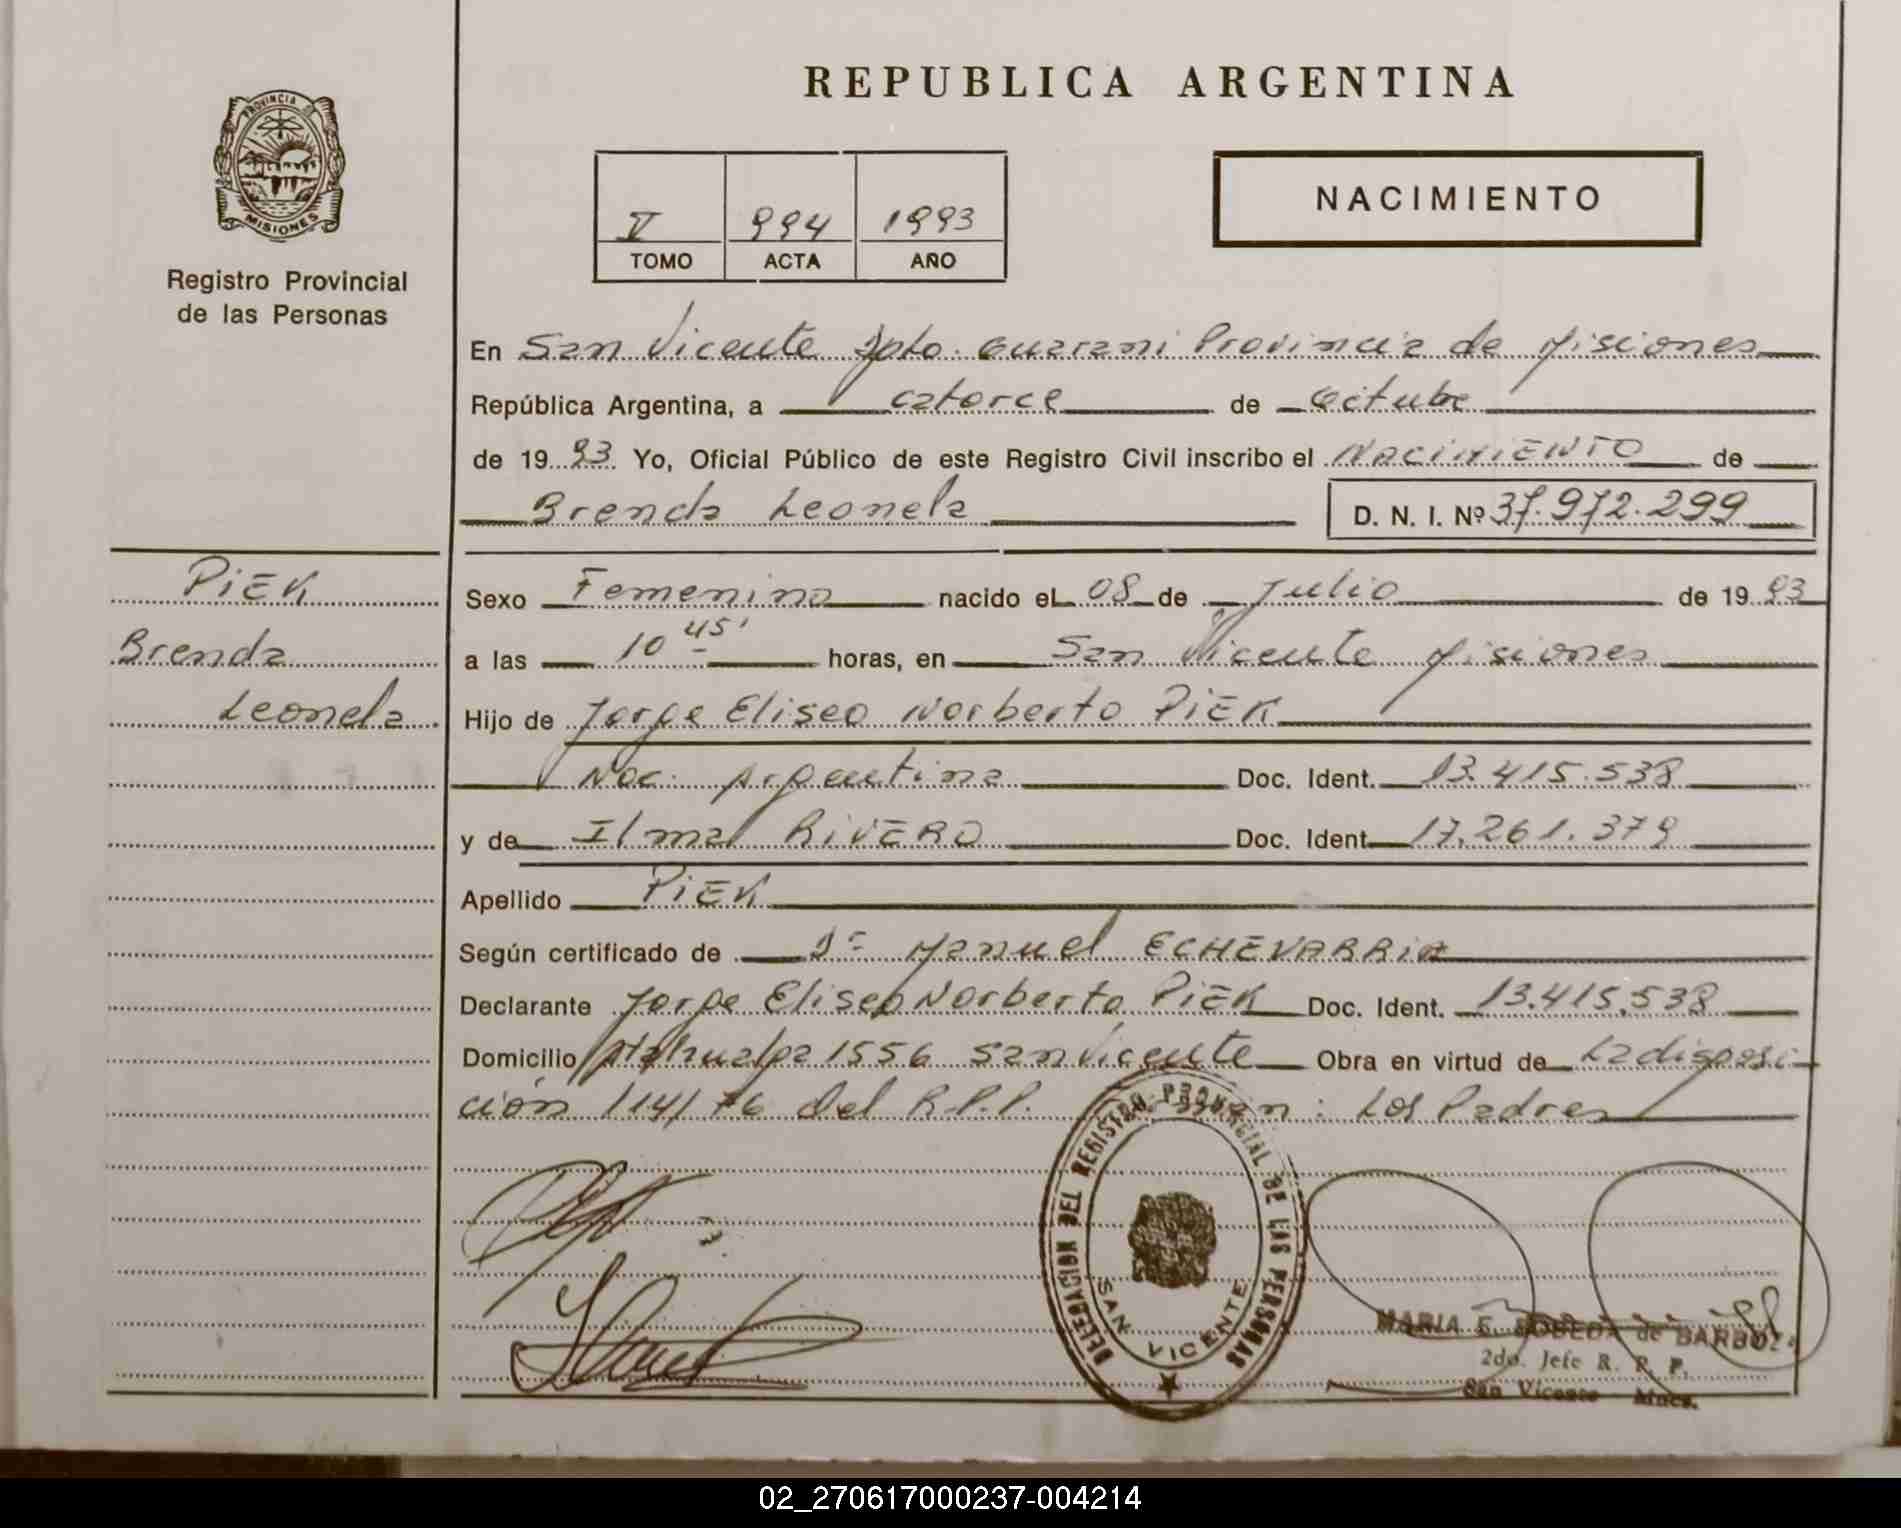 REPUBLICA ARGENTINA
PROVINCIA DE
MISIONES
Registro Provincial
de las Personas
NACIMIENTO
V 994 1993
TOMO ACTA AÑO
En San Vicente Dpto. Guarani Provincia de Misiones
República Argentina, a catorce de Octubre
de 1993 Yo, Oficial Público de este Registro Civil inscribo el NACIMIENTO de
Brenda Leonela D. N. I. Nº 37.972.299
PIEK
Brenda
Leonela
Sexo Femenino nacido el 08 de Julio de 1993
a las 10 45' horas, en San Vicente Misiones
Hijo de Jorge Eliseo Norberto PIEK
Nac. Argentina Doc. Ident. 13.415.538
y de Ilma RIVERO Doc. Ident. 17.261.379
Apellido PIEK
Según certificado de Dr Manuel ECHEVARRIA
Declarante Jorge Eliseo Norberto PIEK Doc. Ident. 13.415.538
Domicilio Atahualpa 1556 San Vicente Obra en virtud de La disposi-
ción 114/76 del R.P.P. Los Padres
DELEGACION DEL REGISTRO PROVINCIAL DE LAS PERSONAS
SAN VICENTE
MARIA E. BOBEDA de BARBOZA
2do. Jefe R. P. P.
San Vicente Mnes.
02_270617000237-004214